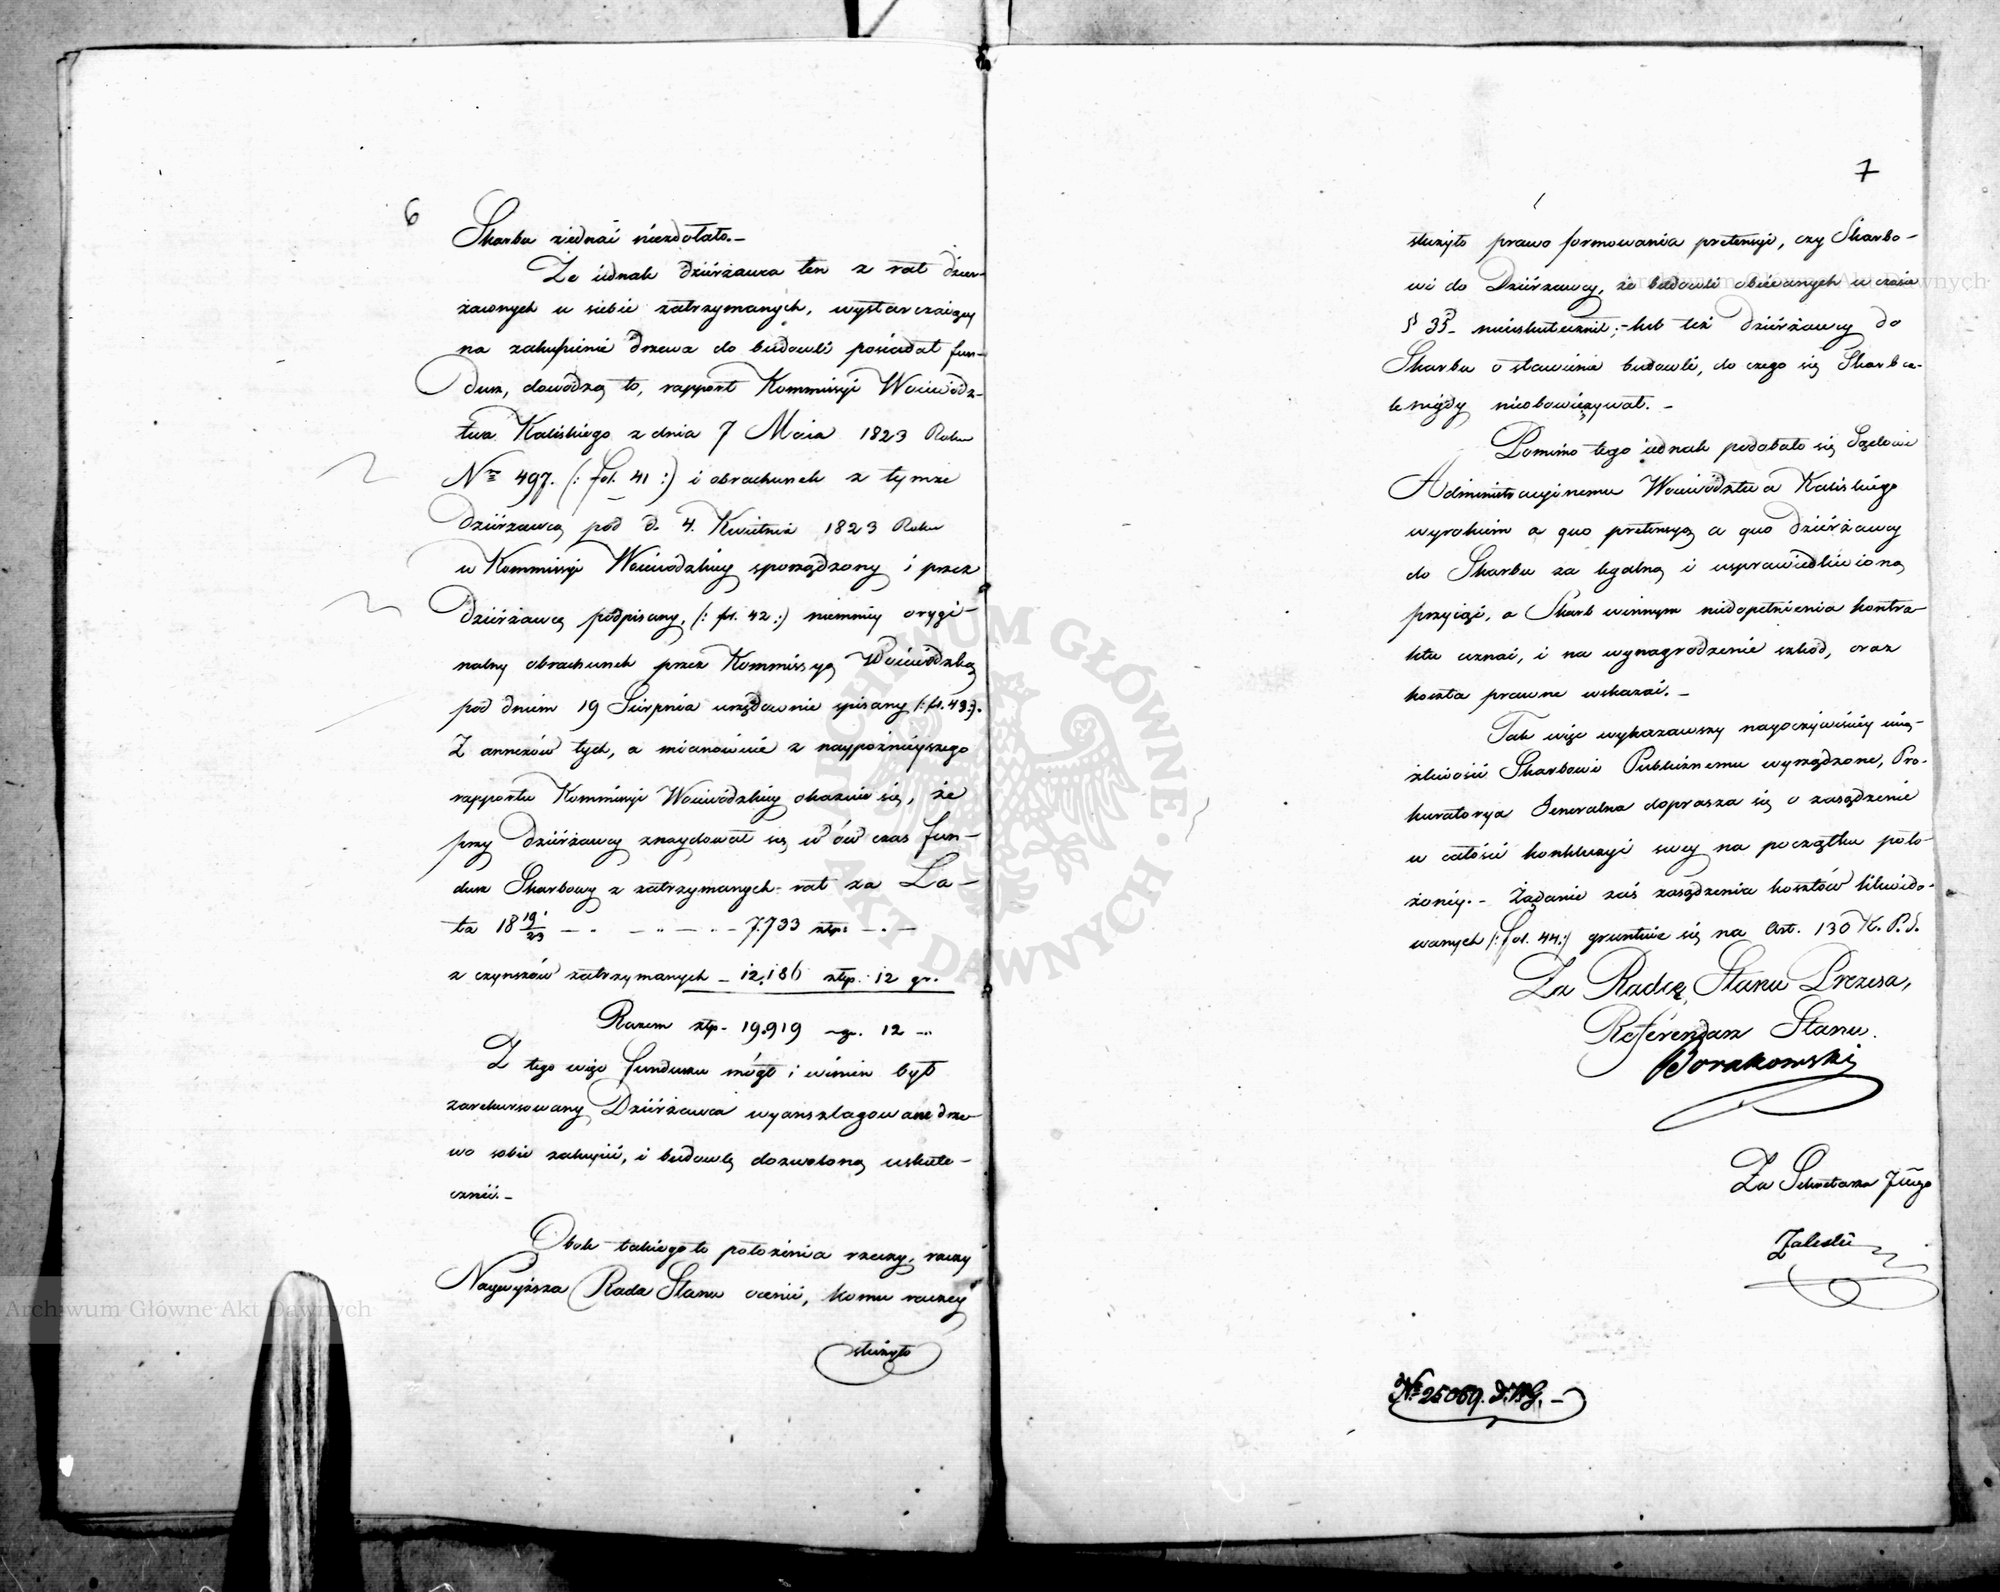 6
Skarbu ziednać niezdołało.-
Że iednak Dzierżawca ten z rat dzier-
żawnych u siebie zatrzymanych, wystarczaiący
na zakupienie drzewa do budowli posiadał fun-
dusz, dowodzą to, rapport Kommissyi Wojewódz-
twa Kaliskiego z dnia 7 Maia 1823 Roku
Nro 497. (: fol. 41 :) i obrachunek z tymże
Dzierżawcą pod d. 4. Kwietnia 1823 Roku
w Kommissyi Woiewódzkiey sporządzony i przez
Dzierżawcę podpisany, (: fol. 42 :) niemniey orygi-
nalny obrachunek przez Kommissyą Woiewódzką
pod dniem 19 Sierpnia urzędownie spisany (: fol. 43 :).
Z annexów tych, a mianowicie z naypóźnieyszego
rapportu Kommissyi Woiewódzkiey okazuie się, że
przy Dzierżawcy znaydował się w ów czas fun-
dusz Skarbowy z zatrzymanych rat za La-
ta 18 19/23 - - - - 7,733 złp. - -
z czynszów zatrzymanych - 12,186 złp. 12 gr.
Razem złp. 19,919 gr. 12
Z tego więc funduszu mógł i winien był
zarekursowany Dzierżawca wyanszlagowane drze-
wo sobie zakupić, i budowlę dozwoloną uskute-
cznić.-
Obok takiego to położenia rzeczy, raczy
Naywyższa Rada Stanu ocenić, komu raczey
służyło
7
służyło prawo formowania pretensyi, czy Skarbo-
wi do Dzierżawcy, że budowli obiecanych w czasie
§ 33. nieuskutecznił; - lub też Dzierżawcy do
Skarbu o stawienie budowli, do czego się Skarb ca-
le nigdy nieobowiązywał.-
Pomimo tego iednak podobało się Sądowi
Administracyinemu Woiewództwa Kaliskiego
wyrokiem a quo pretensyą a quo Dzierżawcy
do Skarbu za legalną i usprawiedliwioną
przyiąć, a Skarb winnym niedopełnienia kontra-
ktu uznać, i na wynagrodzenie szkód, oraz
koszta prawne wskazać.-
Tak więc wykazawszy nayoczywiściey uią-
żliwość Skarbowi Publicznemu wyrządzone, Pro-
kuratorya Jeneralna doprasza się o zasądzenie
w całości konkluzyi swey na początku poło-
żoney.- Żądanie zaś zasądzenia kosztów likwido-
wanych (: fol. 44 :) gruntuie się na Art. 130 K. P. S.
Za Radcę Stanu Prezesa,
Referendarz Stanu.
Za Sekretarza Jlnego
Zaleski
No 25069. D.W.G. -
Archiwum Główne Akt Dawnych
Archiwum Główne Akt Dawnych
ARCHIWUM GŁÓWNE · AKT DAWNYCH ·